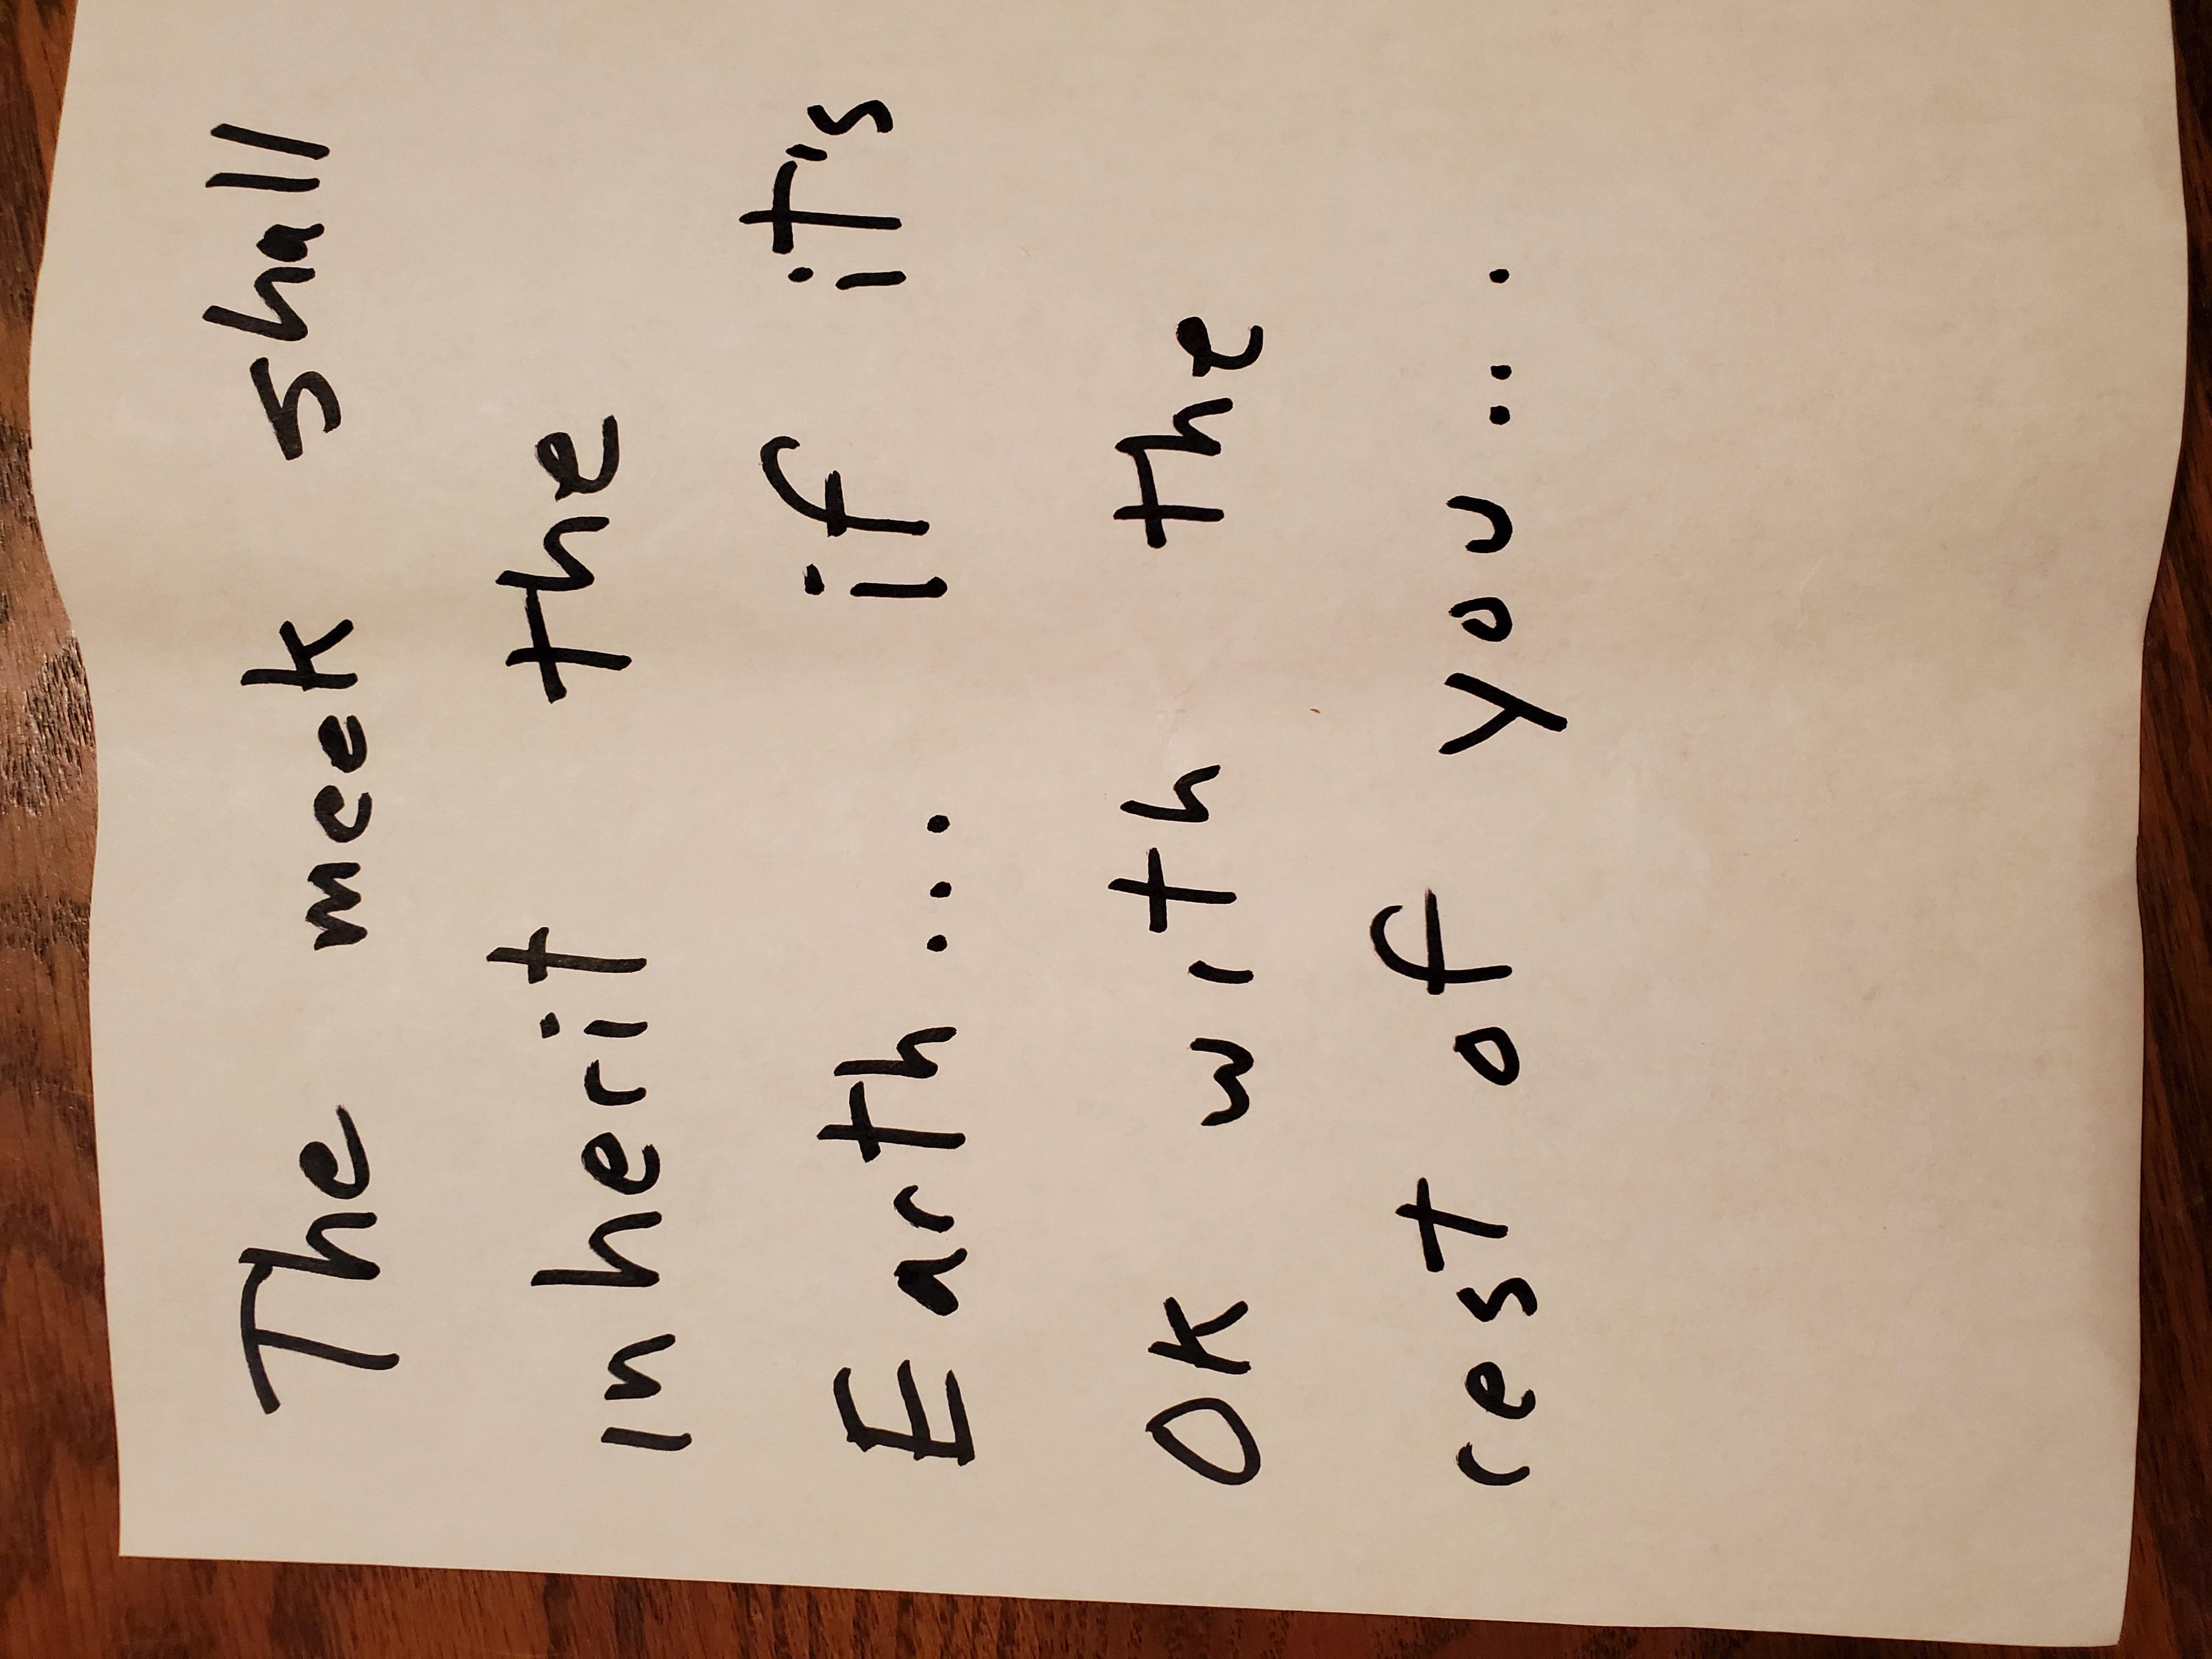 The meek shall
inherit the
Earth... if it's
OK with the
rest of you...